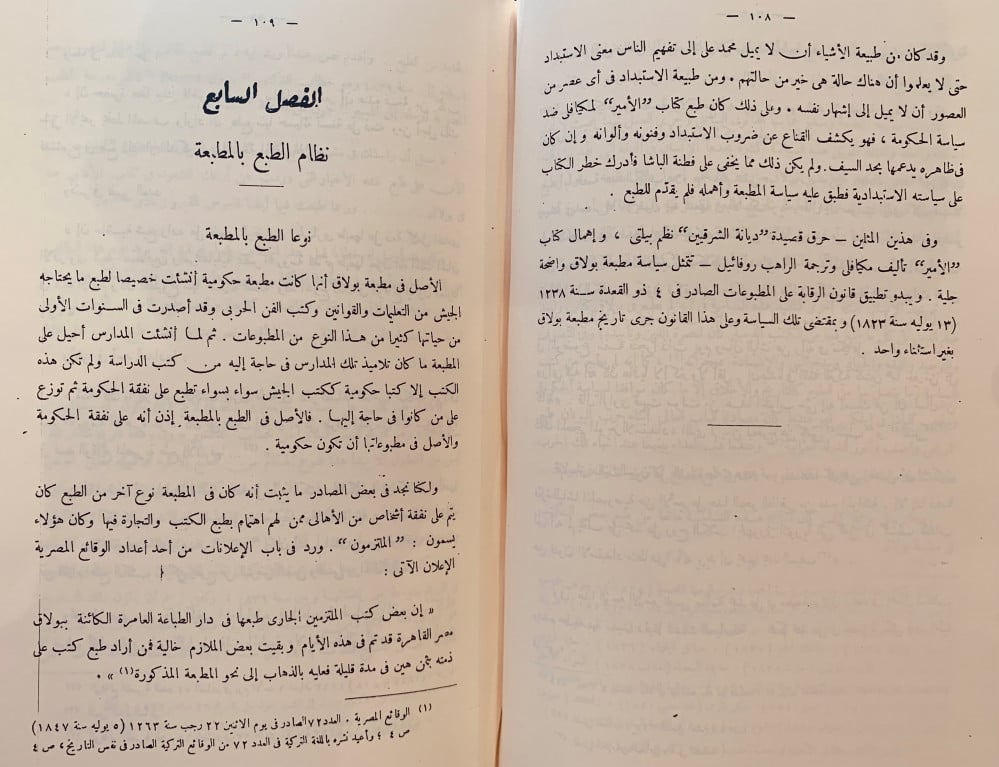 — ١٠٨ —
وقد كان من طبيعة الأشياء أن لا يميل محمد على إلى تفهيم الناس معنى الاستبداد
حتى لا يعلموا أن هناك حالة هى خير من حالتهم . ومن طبيعة الاستبداد فى أى عصر من
العصور أن لا يميل إلى إشهار نفسه . وعلى ذلك كان طبع كتاب "الأمير" لمكيافلى ضد
سياسة الحكومة ، فهو يكشف القناع عن ضروب الاستبداد وفنونه وألوانه وإن كان
فى ظاهره يدعمها بحد السيف . ولم يكن ذلك مما يخفى على فطنة الباشا فأدرك خطر الكتاب
على سياسته الاستبدادية فطبق عليه سياسة المطبعة وأهمله فلم يقدّم للطبع .
وفى هذين المثلين — حرق قصيدة "ديانة الشرقيين" نظم بيلتى ، وإهمال كتاب
"الأمير" تأليف مكيافلى وترجمة الراهب روفائيل — تتمثل سياسة مطبعة بولاق واضحة
جلية . ويبدو تطبيق قانون الرقابة على المطبوعات الصادر فى ٤ ذو القعدة سنة ١٢٣٨
(١٣ يوليه سنة ١٨٢٣) وبمقتضى تلك السياسة وعلى هذا القانون جرى تاريخ مطبعة بولاق
بغير استثناء واحد .
— ١٠٩ —
الفصل السابع
نظام الطبع بالمطبعة
نوعا الطبع بالمطبعة
الأصل فى مطبعة بولاق أنها كانت مطبعة حكومية أنشئت خصيصا لطبع ما يحتاجه
الجيش من التعليمات والقوانين وكتب الفن الحربى وقد أصدرت فى السنوات الأولى
من حياتها كثيرا من هذا النوع من المطبوعات . ثم لما أنشئت المدارس أحيل على
المطبعة ما كان تلاميذ تلك المدارس فى حاجة إليه من كتب الدراسة ولم تكن هذه
الكتب إلا كتبا حكومية ككتب الجيش سواء بسواء تطبع على نفقة الحكومة ثم توزع
على من كانوا فى حاجة إليها . فالأصل فى الطبع بالمطبعة إذن أنه على نفقة الحكومة
والأصل فى مطبوعاتها أن تكون حكومية .
ولكنا نجد فى بعض المصادر ما يثبت أنه كان فى المطبعة نوع آخر من الطبع كان
يتم على نفقة أشخاص من الأهالى ممن لهم اهتمام بطبع الكتب والتجارة فيها وكان هؤلاء
يسمون : "الملتزمون" . ورد فى باب الإعلانات من أحد أعداد الوقائع المصرية
الإعلان الآتى :
« إن بعض كتب الملتزمين الجارى طبعها فى دار الطباعة العامرة الكائنة ببولاق
مصر القاهرة قد تم فى هذه الأيام وبقيت بعض الملازم خالية فمن أراد طبع كتب على
ذمته بثمن هين فى مدة قليلة فعليه بالذهاب إلى نحو المطبعة المذكورة (١) » .
(١) الوقائع المصرية . العدد ٧٢ الصادر فى يوم الاثنين ٢٢ رجب سنة ١٢٦٣ (٥ يوليه سنة ١٨٤٧)
ص ٤ ؛ وأعيد نشره باللغة التركية فى العدد ٧٢ من الوقائع التركية الصادر فى نفس التاريخ ، ص ٤